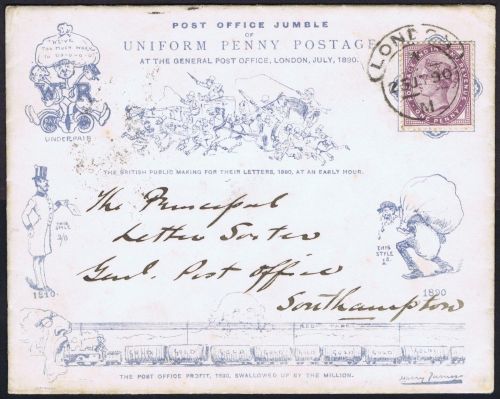 POST OFFICE JUMBLE
OF
UNIFORM PENNY POSTAGE
AT THE GENERAL POST OFFICE, LONDON, JULY, 1890.
WE'VE
TOO MUCH WORK
TO DO-O-O-O
W R
UNDERPAID
LONDON
90
THE BRITISH PUBLIC MAKING FOR THEIR LETTERS, 1890, AT AN EARLY HOUR.
The Principal
Letter Sorter
Genl. Post Office
Southampton
THIS
STYLE
1810.
THIS
STYLE
1890
GOLD GOLD GOLD GOLD GOLD GOLD
THE POST OFFICE PROFIT, 1890, SWALLOWED UP BY THE MILLION.
Harry Furniss